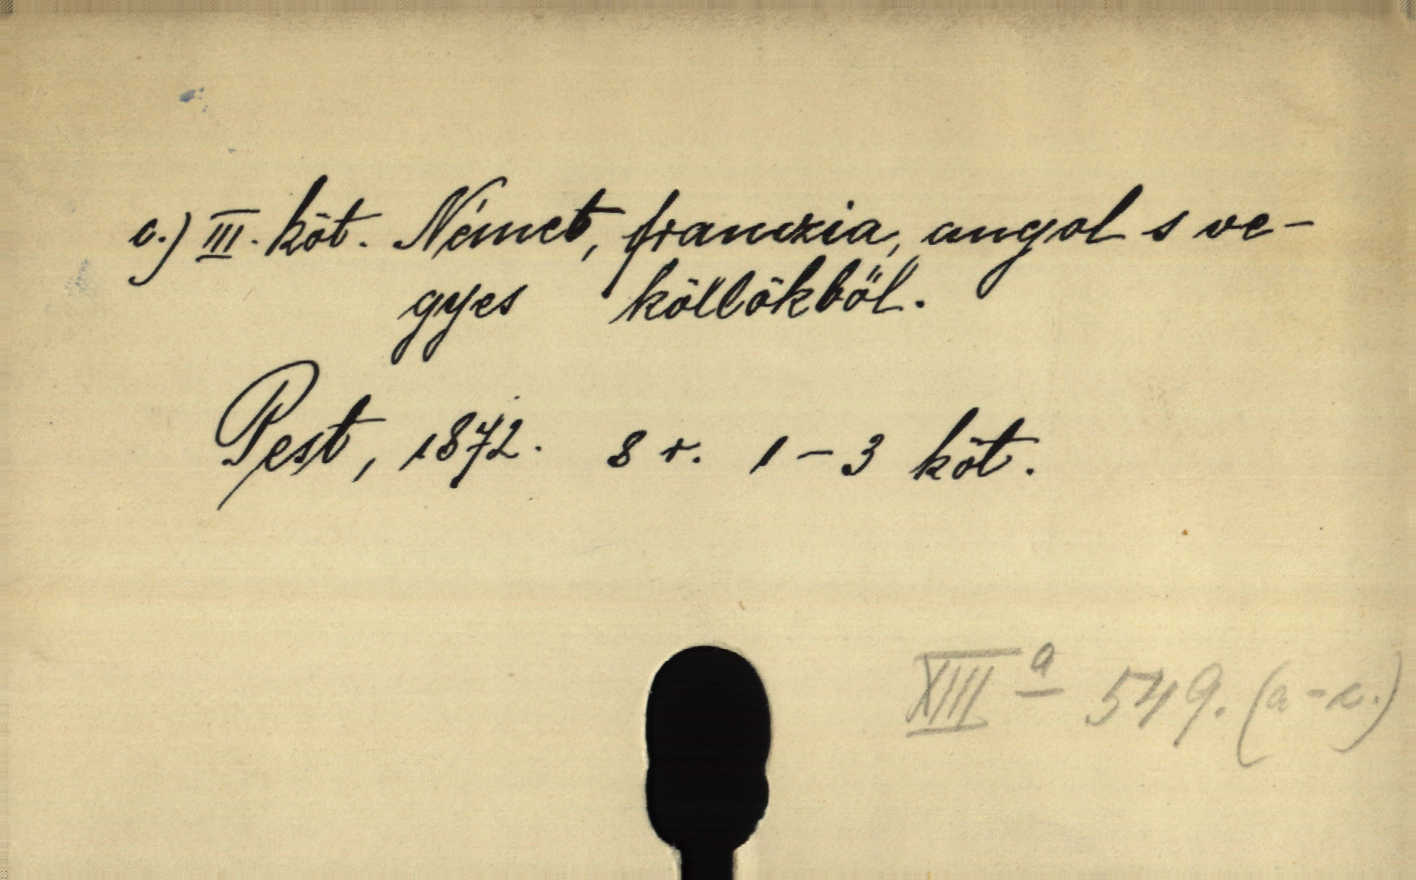 c.) III. köt. Német, franczia, angol s ve-
gyes költőkből.
Pest, 1872. 8 r. 1-3 köt.
XIII a 549. (a-c.)